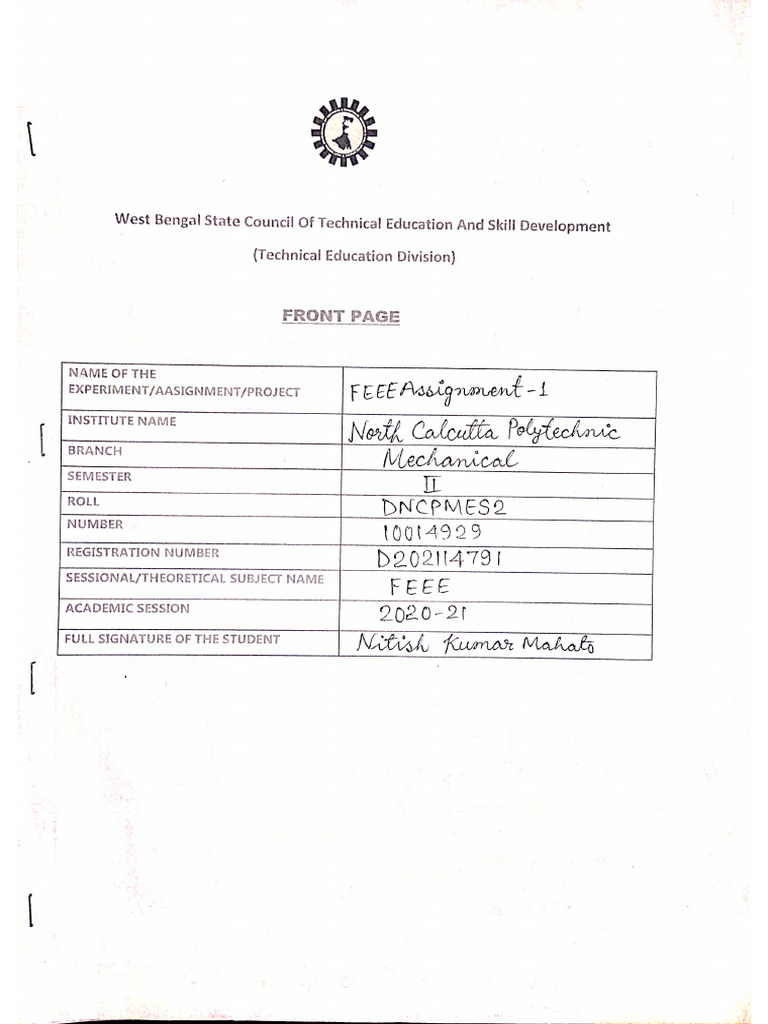 West Bengal State Council Of Technical Education And Skill Development
(Technical Education Division)
FRONT PAGE
NAME OF THE
EXPERIMENT/AASIGNMENT/PROJECT FEEE Assignment-1
INSTITUTE NAME North Calcutta Polytechnic
BRANCH Mechanical
SEMESTER II
ROLL DNCPMES2
NUMBER 10014929
REGISTRATION NUMBER D202114791
SESSIONAL/THEORETICAL SUBJECT NAME FEEE
ACADEMIC SESSION 2020-21
FULL SIGNATURE OF THE STUDENT Nitish Kumar Mahato